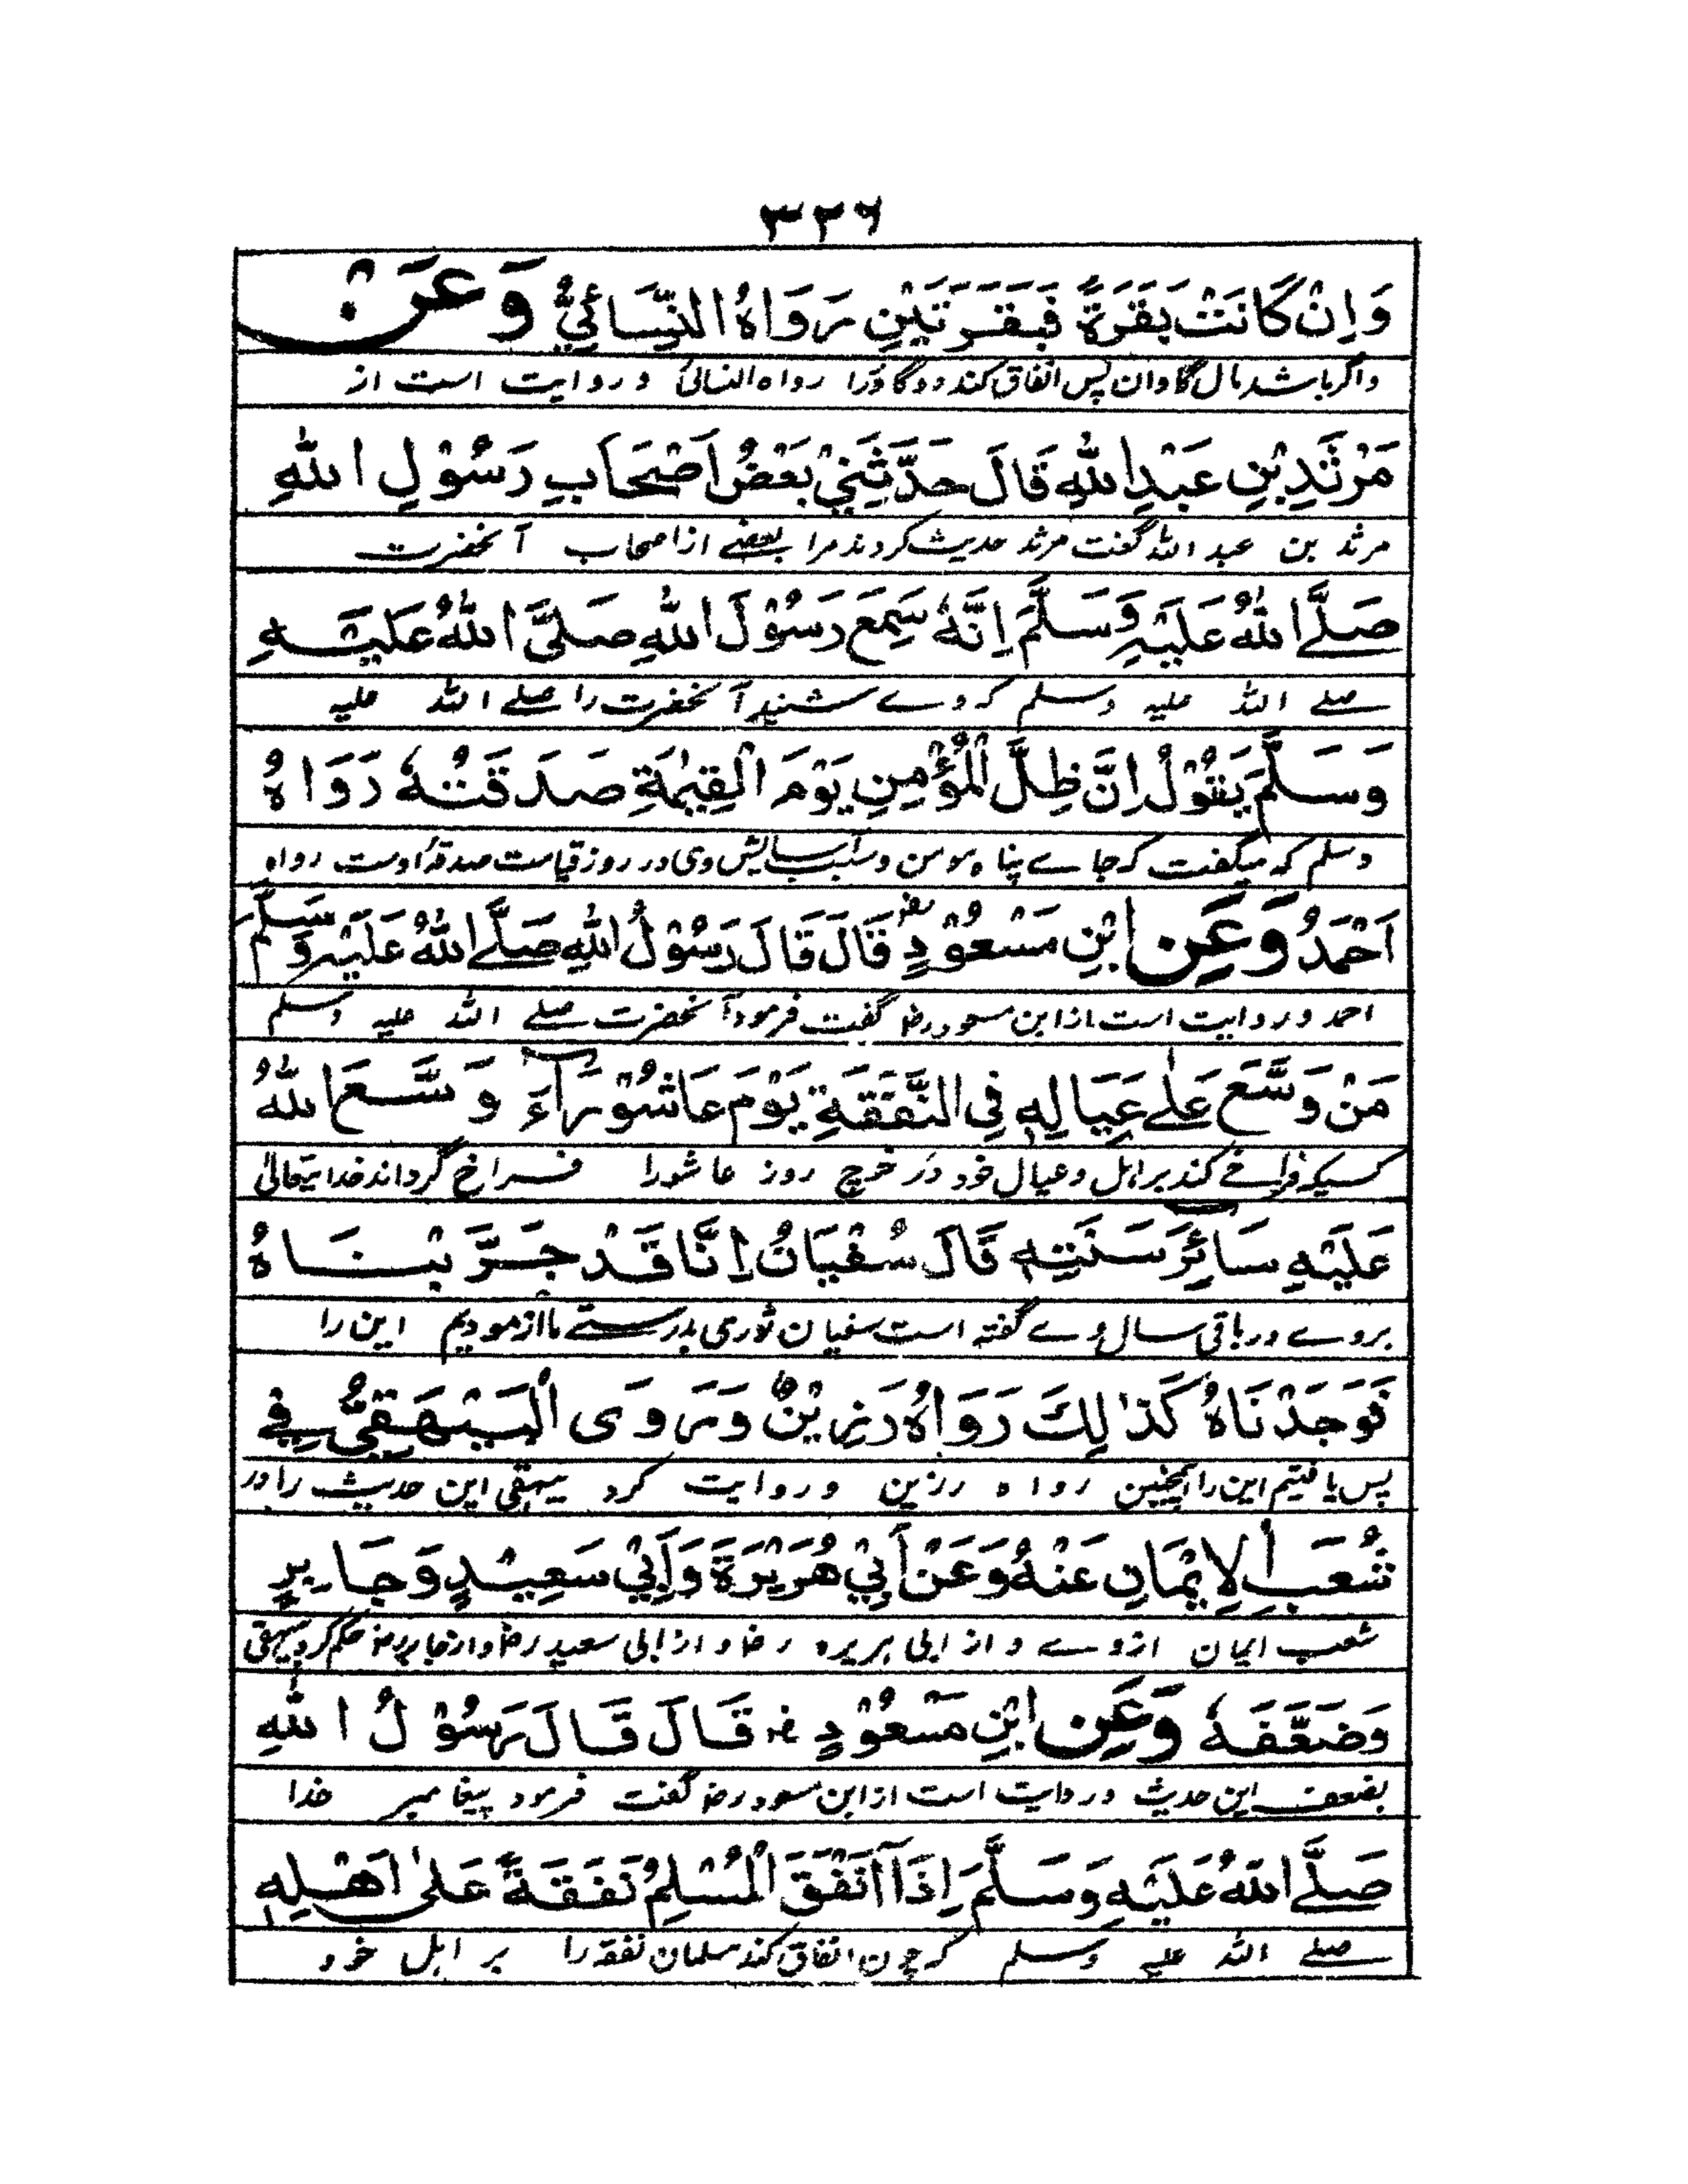 ٣٢٦
وَاِنْ كَانَتْ بَقَرَةً فَبَقَرَتَيْنِ رَوَاهُ النِّسَائِيُّ وَعَنْ
واگر باشد مال گاوان پس انفاق کند دو گاو را رواه النسائی و روایت است از
مَرْثَدِ بْنِ عَبْدِ اللّٰهِ قَالَ حَدَّثَنِيْ بَعْضُ اَصْحَابِ رَسُوْلِ اللّٰهِ
مرثد بن عبد اللّٰه گفت مرثد حدیث کردند مرا بعضے از اصحاب آنحضرت
صَلَّے اللّٰهُ عَلَيْهِ وَسَلَّمَ اِنَّهٗ سَمِعَ رَسُوْلَ اللّٰهِ صَلَّى اللّٰهُ عَلَيْهِ
صلے اللّٰه علیه وسلم که وے شنید آنحضرت را صلے اللّٰه علیه
وَسَلَّمَ يَقُوْلُ اِنَّ ظِلَّ الْمُؤْمِنِ يَوْمَ الْقِيٰمَةِ صَدَقَتُهٗ رَوَاهُ
وسلم که میگفت که جاے پناه مومن وسبب آسایش وی در روز قیامت صدقهٔ اوست رواه
اَحْمَدُ وَعَنِ ابْنِ مَسْعُوْدٍ رض قَالَ قَالَ رَسُوْلُ اللّٰهِ صَلَّے اللّٰهُ عَلَيْهِ وَسَلَّمَ
احمد و روایت است از ابن مسعود رض گفت فرمود آنحضرت صلے اللّٰه علیه وسلم
مَنْ وَسَّعَ عَلٰے عِيَالِهٖ فِي النَّفَقَةِ يَوْمَ عَاشُوْرَآءَ وَسَّعَ اللّٰهُ
کسیکه فراخے کند بر اهل و عیال خود در خرچ روز عاشورا فراخ گرداند خدایتعالیٰ
عَلَيْهِ سَائِرَ سَنَتِهٖ قَالَ سُفْيَانُ اِنَّا قَدْ جَرَّبْنَاهُ
بروے در باقی سال وے گفته است سفیان ثوری بدرستے ما آزمودیم این را
فَوَجَدْنَاهُ كَذٰلِكَ رَوَاهُ رَزِيْنٌ وَرَوَى الْبَيْهَقِيُّ فِے
پس یافتیم این را همچنین رواه رزین و روایت کرد بیهقی این حدیث را در
شُعَبِ الْاِيْمَانِ عَنْهُ وَعَنْ اَبِيْ هُرَيْرَةَ وَاَبِيْ سَعِيْدٍ وَجَابِرٍ
شعب ایمان ازوے و از ابی هریره رض و از ابی سعید رض و از جابر رض حکم کرد بیهقی
وَضَعَّفَهٗ وَعَنِ ابْنِ مَسْعُوْدٍ رض قَالَ قَالَ رَسُوْلُ اللّٰهِ
بضعف این حدیث و روایت است از ابن مسعود رض گفت فرمود پیغامبر خدا
صَلَّے اللّٰهُ عَلَيْهِ وَسَلَّمَ اِذَا اَنْفَقَ الْمُسْلِمُ نَفَقَةً عَلٰى اَهْلِهٖ
صلے اللّٰه علیه وسلم که چون انفاق کند مسلمان نفقه را بر اهل خود